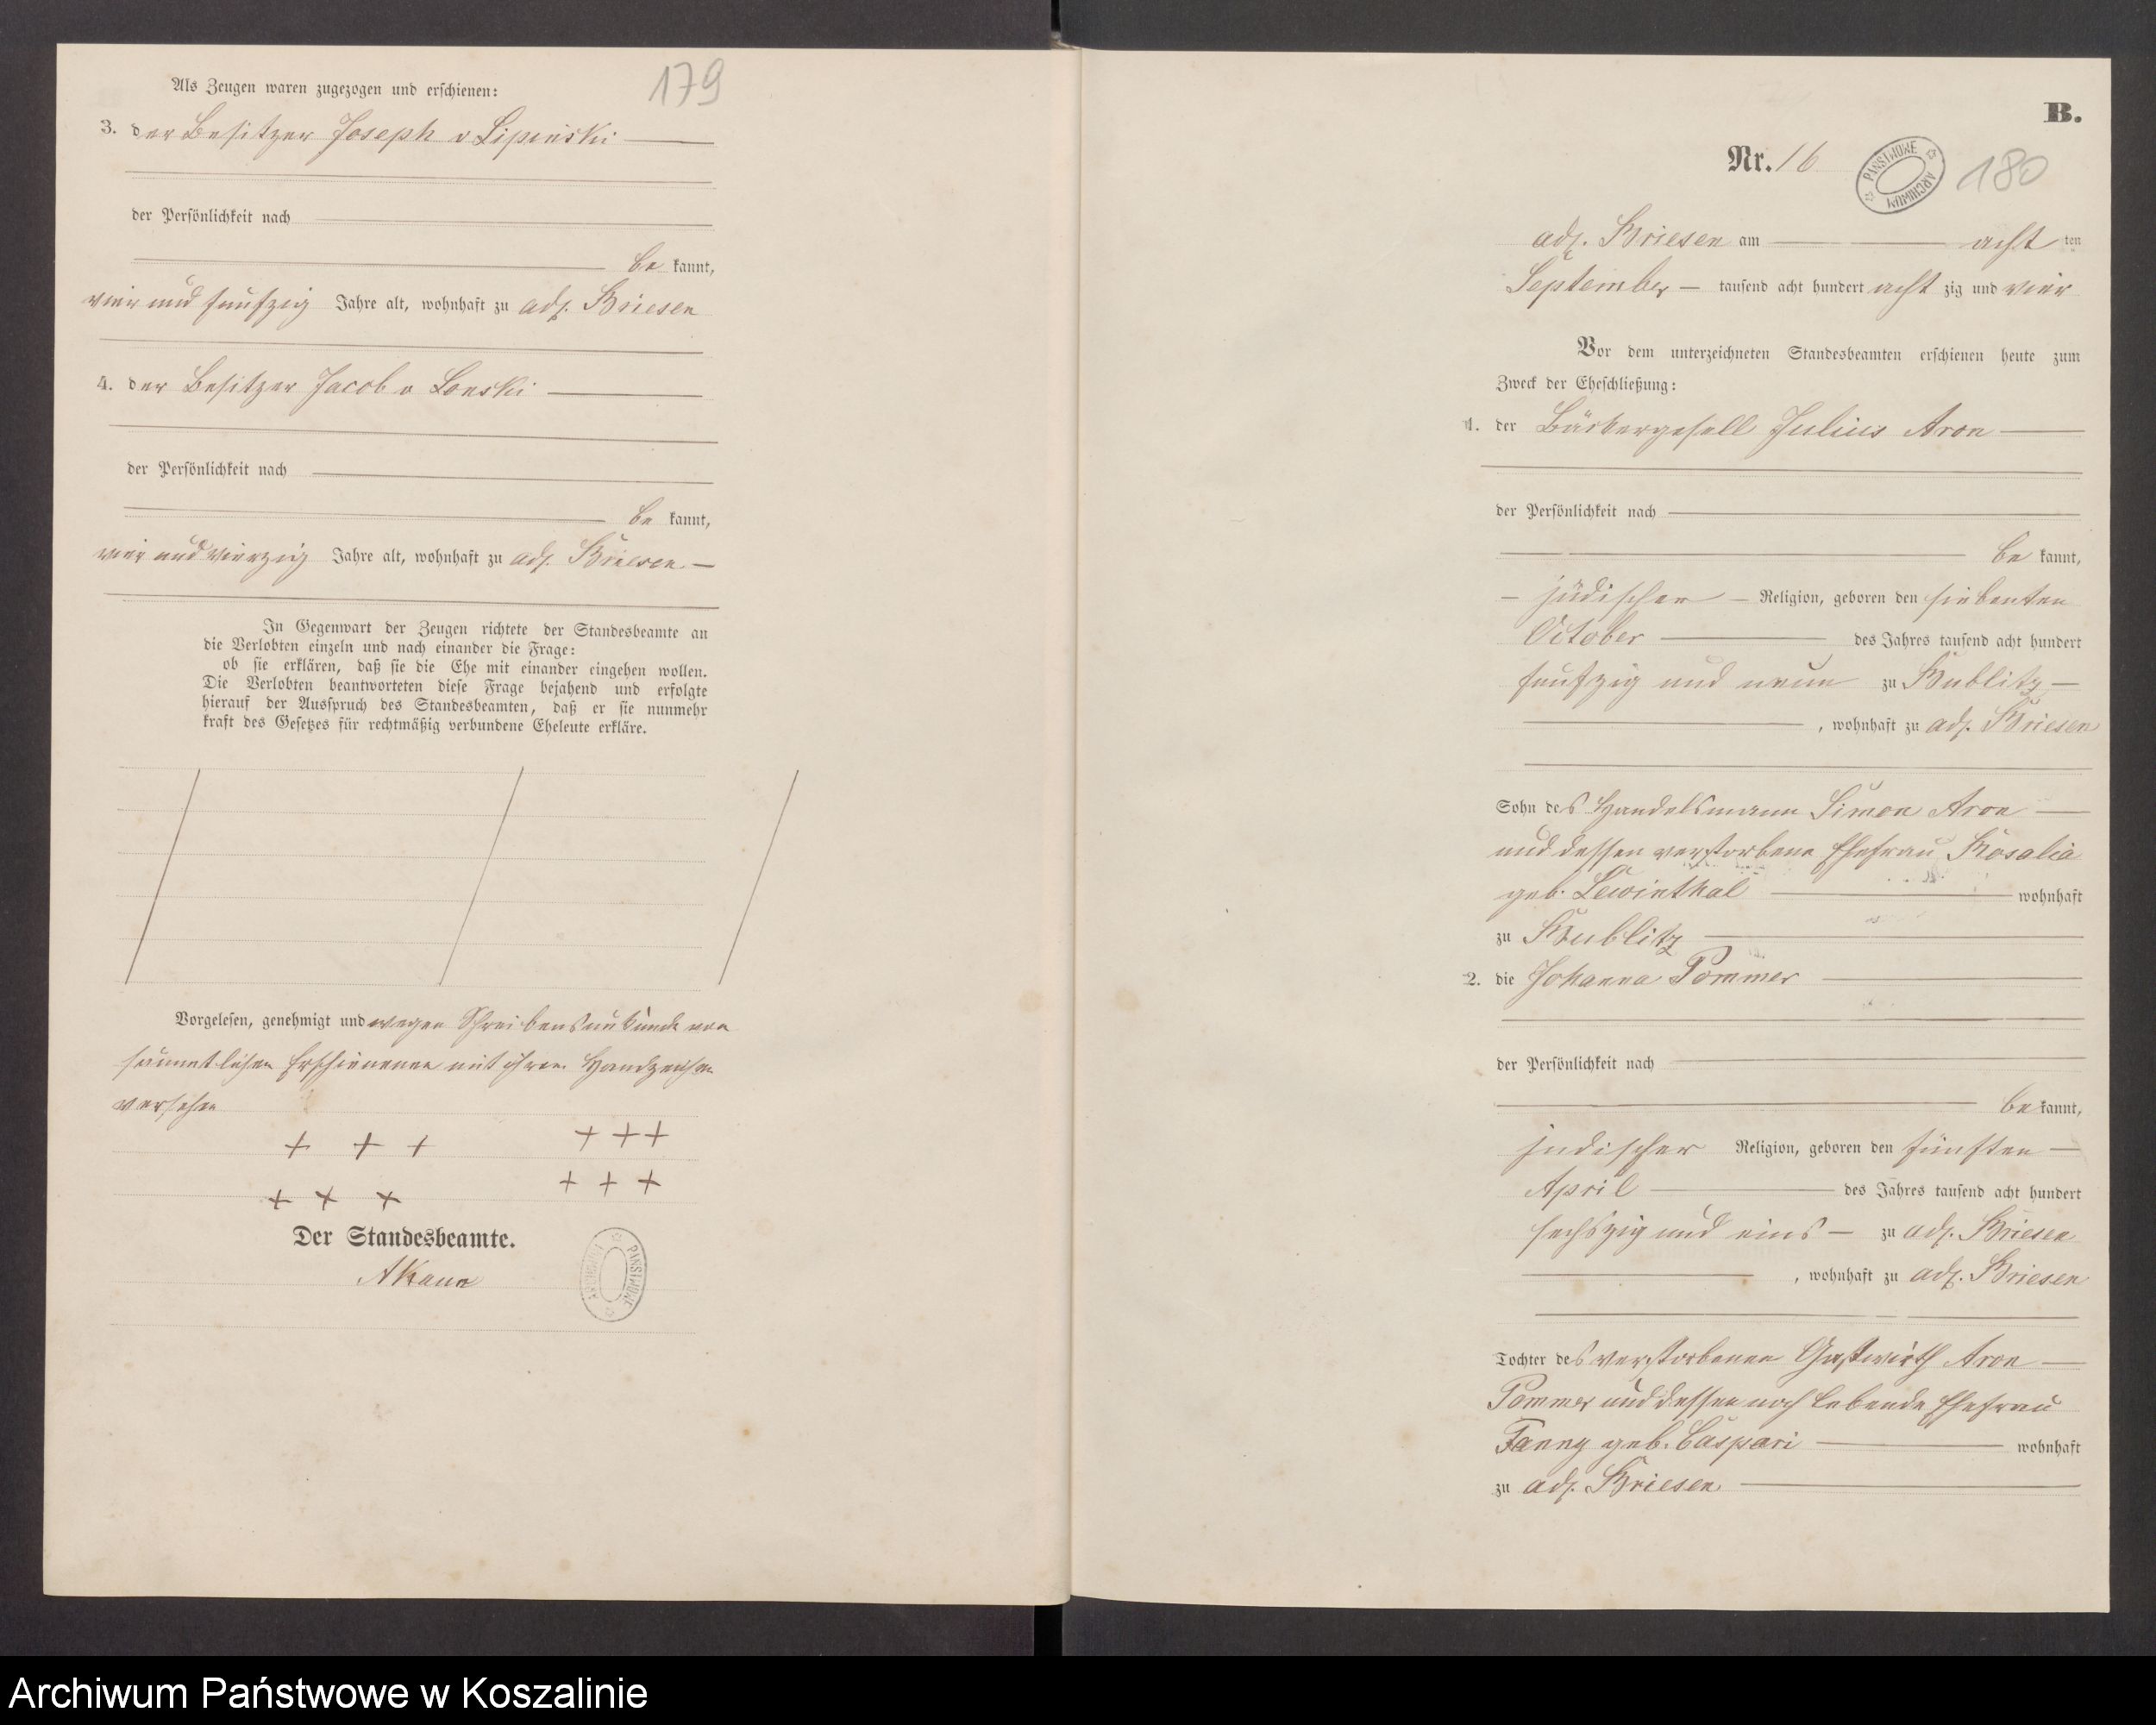 179
Als Zeugen waren zugezogen und erschienen:
3. der Besitzer Joseph v Lipinski
der Persönlichkeit nach
be kannt,
vier und fünfzig Jahre alt, wohnhaft zu adl. Briesen
4. der Besitzer Jacob v Lonski
der Persönlichkeit nach
be kannt,
vier und vierzig Jahre alt, wohnhaft zu adl. Briesen
In Gegenwart der Zeugen richtete der Standesbeamte an
die Verlobten einzeln und nach einander die Frage:
ob sie erklären, daß sie die Ehe mit einander eingehen wollen.
Die Verlobten beantworteten diese Frage bejahend und erfolgte
hierauf der Ausspruch des Standesbeamten, daß er sie nunmehr
kraft des Gesetzes für rechtmäßig verbundene Eheleute erkläre.
Vorgelesen, genehmigt und wegen Schreibensunkunde von
sämmtlichen Erschienenen mit ihren Handzeichen
versehen
+ + + + + +
+ + + + + +
Der Standesbeamte.
A Kann
ARCHIWUM PAŃSTWOWE
B.
Nr. 16
PAŃSTWOWE ARCHIWUM
180
adl. Briesen am acht ten
September tausend acht hundert acht zig und vier
Vor dem unterzeichneten Standesbeamten erschienen heute zum
Zweck der Eheschließung:
1. der Bäckergesell Julius Aron
der Persönlichkeit nach
be kannt,
jüdischer Religion, geboren den siebenten
October des Jahres tausend acht hundert
fünfzig und neun zu Bublitz
, wohnhaft zu adl. Briesen
Sohn des Handelsmann Simon Aron
und dessen verstorbene Ehefrau Rosalia
geb. Lewinthal wohnhaft
zu Bublitz
2. die Johanna Pommer
der Persönlichkeit nach
be kannt,
jüdischer Religion, geboren den fünften
April des Jahres tausend acht hundert
sechszig und eins zu adl. Briesen
, wohnhaft zu adl. Briesen
Tochter des verstorbenen Gastwirth Aron
Pommer und dessen noch lebende Ehefrau
Fanny geb. Caspari wohnhaft
zu adl. Briesen
Archiwum Państwowe w Koszalinie